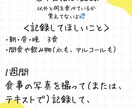 以外と何を食べているか
覚えてないよ💦
＜記録してほしいこと＞
・朝・昼・晩　3食
・間食や飲み物(水も、アルコールも)
1週間
食事の写真を撮って(または、
テキストで)記録して、